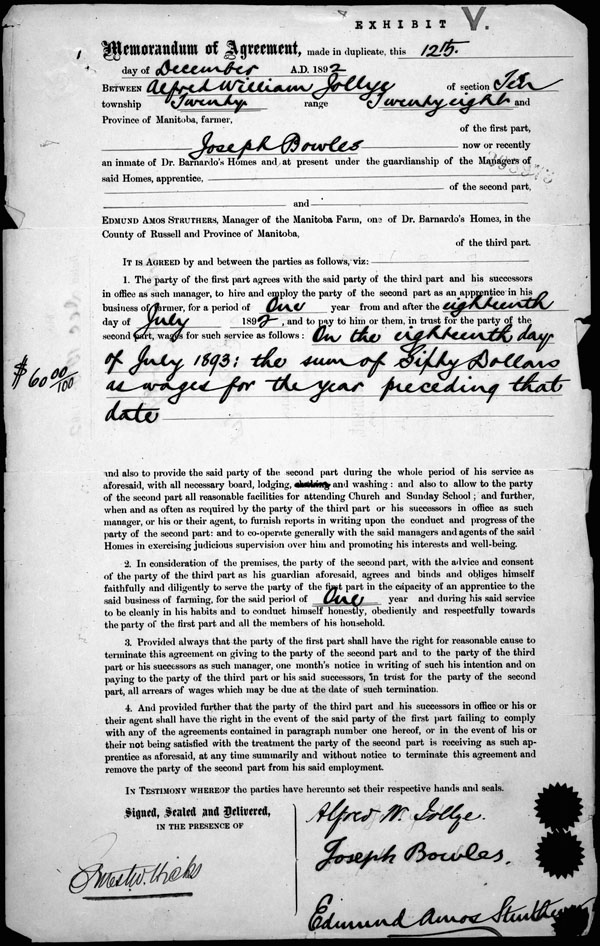 EXHIBIT V.
1
Memorandum of Agreement, made in duplicate, this 12th.
day of December A.D. 1892
BETWEEN Alfred William Jollye of section Ten
township Twenty. range Twenty eight and
Province of Manitoba, farmer,
of the first part,
Joseph Bowles now or recently
an inmate of Dr. Barnardo's Homes and at present under the guardianship of the Managers of
said Homes, apprentice,
of the second part,
and
EDMUND AMOS STRUTHERS, Manager of the Manitoba Farm, one of Dr. Barnardo's Homes, in the
County of Russell and Province of Manitoba,
of the third part.
IT IS AGREED by and between the parties as follows, viz:
1. The party of the first part agrees with the said party of the third part and his successors
in office as such manager, to hire and employ the party of the second part as an apprentice in his
business of farmer, for a period of One year from and after the eighteenth
day of July 1892, and to pay to him or them, in trust for the party of the
second part, wages for such service as follows: On the eighteenth day
of July 1893: the sum of Fifty Dollars
$60 00/100
as wages for the year preceding that
date
and also to provide the said party of the second part during the whole period of his service as
aforesaid, with all necessary board, lodging, and washing: and also to allow to the party
of the second part all reasonable facilities for attending Church and Sunday School; and further,
when and as often as required by the party of the third part or his successors in office as such
manager, or his or their agent, to furnish reports in writing upon the conduct and progress of the
party of the second part: and to co-operate generally with the said managers and agents of the said
Homes in exercising judicious supervision over him and promoting his interests and well-being.
2. In consideration of the premises, the party of the second part, with the advice and consent
of the party of the third part as his guardian aforesaid, agrees and binds and obliges himself
faithfully and diligently to serve the party of the first part in the capacity of an apprentice to the
said business of farming, for the said period of One year and during his said service
to be cleanly in his habits and to conduct himself honestly, obediently and respectfully towards
the party of the first part and all the members of his household.
3. Provided always that the party of the first part shall have the right for reasonable cause to
terminate this agreement on giving to the party of the second part and to the party of the third
part or his successors as such manager, one month's notice in writing of such his intention and on
paying to the party of the third part or his said successors, in trust for the party of the second
part, all arrears of wages which may be due at the date of such termination.
4. And provided further that the party of the third part and his successors in office or his or
their agent shall have the right in the event of the said party of the first part failing to comply
with any of the agreements contained in paragraph number one hereof, or in the event of his or
their not being satisfied with the treatment the party of the second part is receiving as such ap-
prentice as aforesaid, at any time summarily and without notice to terminate this agreement and
remove the party of the second part from his said employment.
IN TESTIMONY WHEREOF the parties have hereunto set their respective hands and seals.
Signed, Sealed and Delivered,
IN THE PRESENCE OF
Alfred W. Jollye.
Joseph Bowles.
Hicks
Edmund Amos Struthers